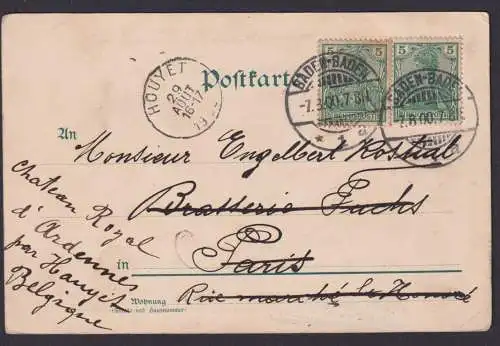 HOUYET
29
AOUT
16-17
Postkarte
5 5
5 5
BADEN-BADEN
-7.8.00.7-8
* 1 a
BADEN-BADEN
-7.8.00.7
a
An
Monsieur Engelbert
Brasserie Fuchs
in Paris
Rue marché St Honoré
Wohnung
(Straße und Hausnummer)
Chateau Royal
d'Ardennes
par Houyet
Belgique